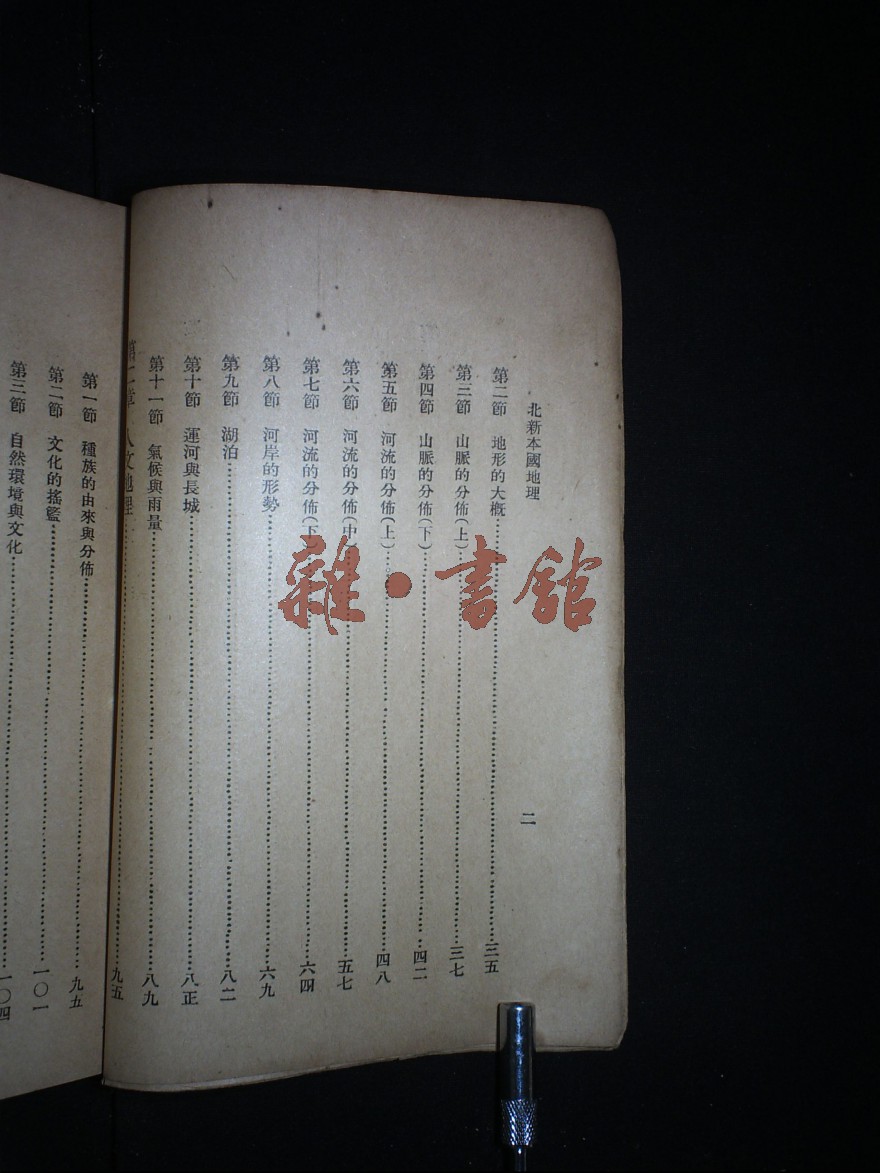 北新本國地理
二
第二節 地形的大概 三五
第三節 山脈的分佈(上) 三七
第四節 山脈的分佈(下) 四二
第五節 河流的分佈(上) 四八
第六節 河流的分佈(中 五七
第七節 河流的分佈(下 六四
第八節 河岸的形勢 六九
第九節 湖泊 八二
第十節 運河與長城 八正
第十一節 氣候與雨量 八九
第二章 人文地理 九五
第一節 種族的由來與分佈 九五
第二節 文化的搖籃 一〇一
第三節 自然環境與文化 一〇四
雜·書館